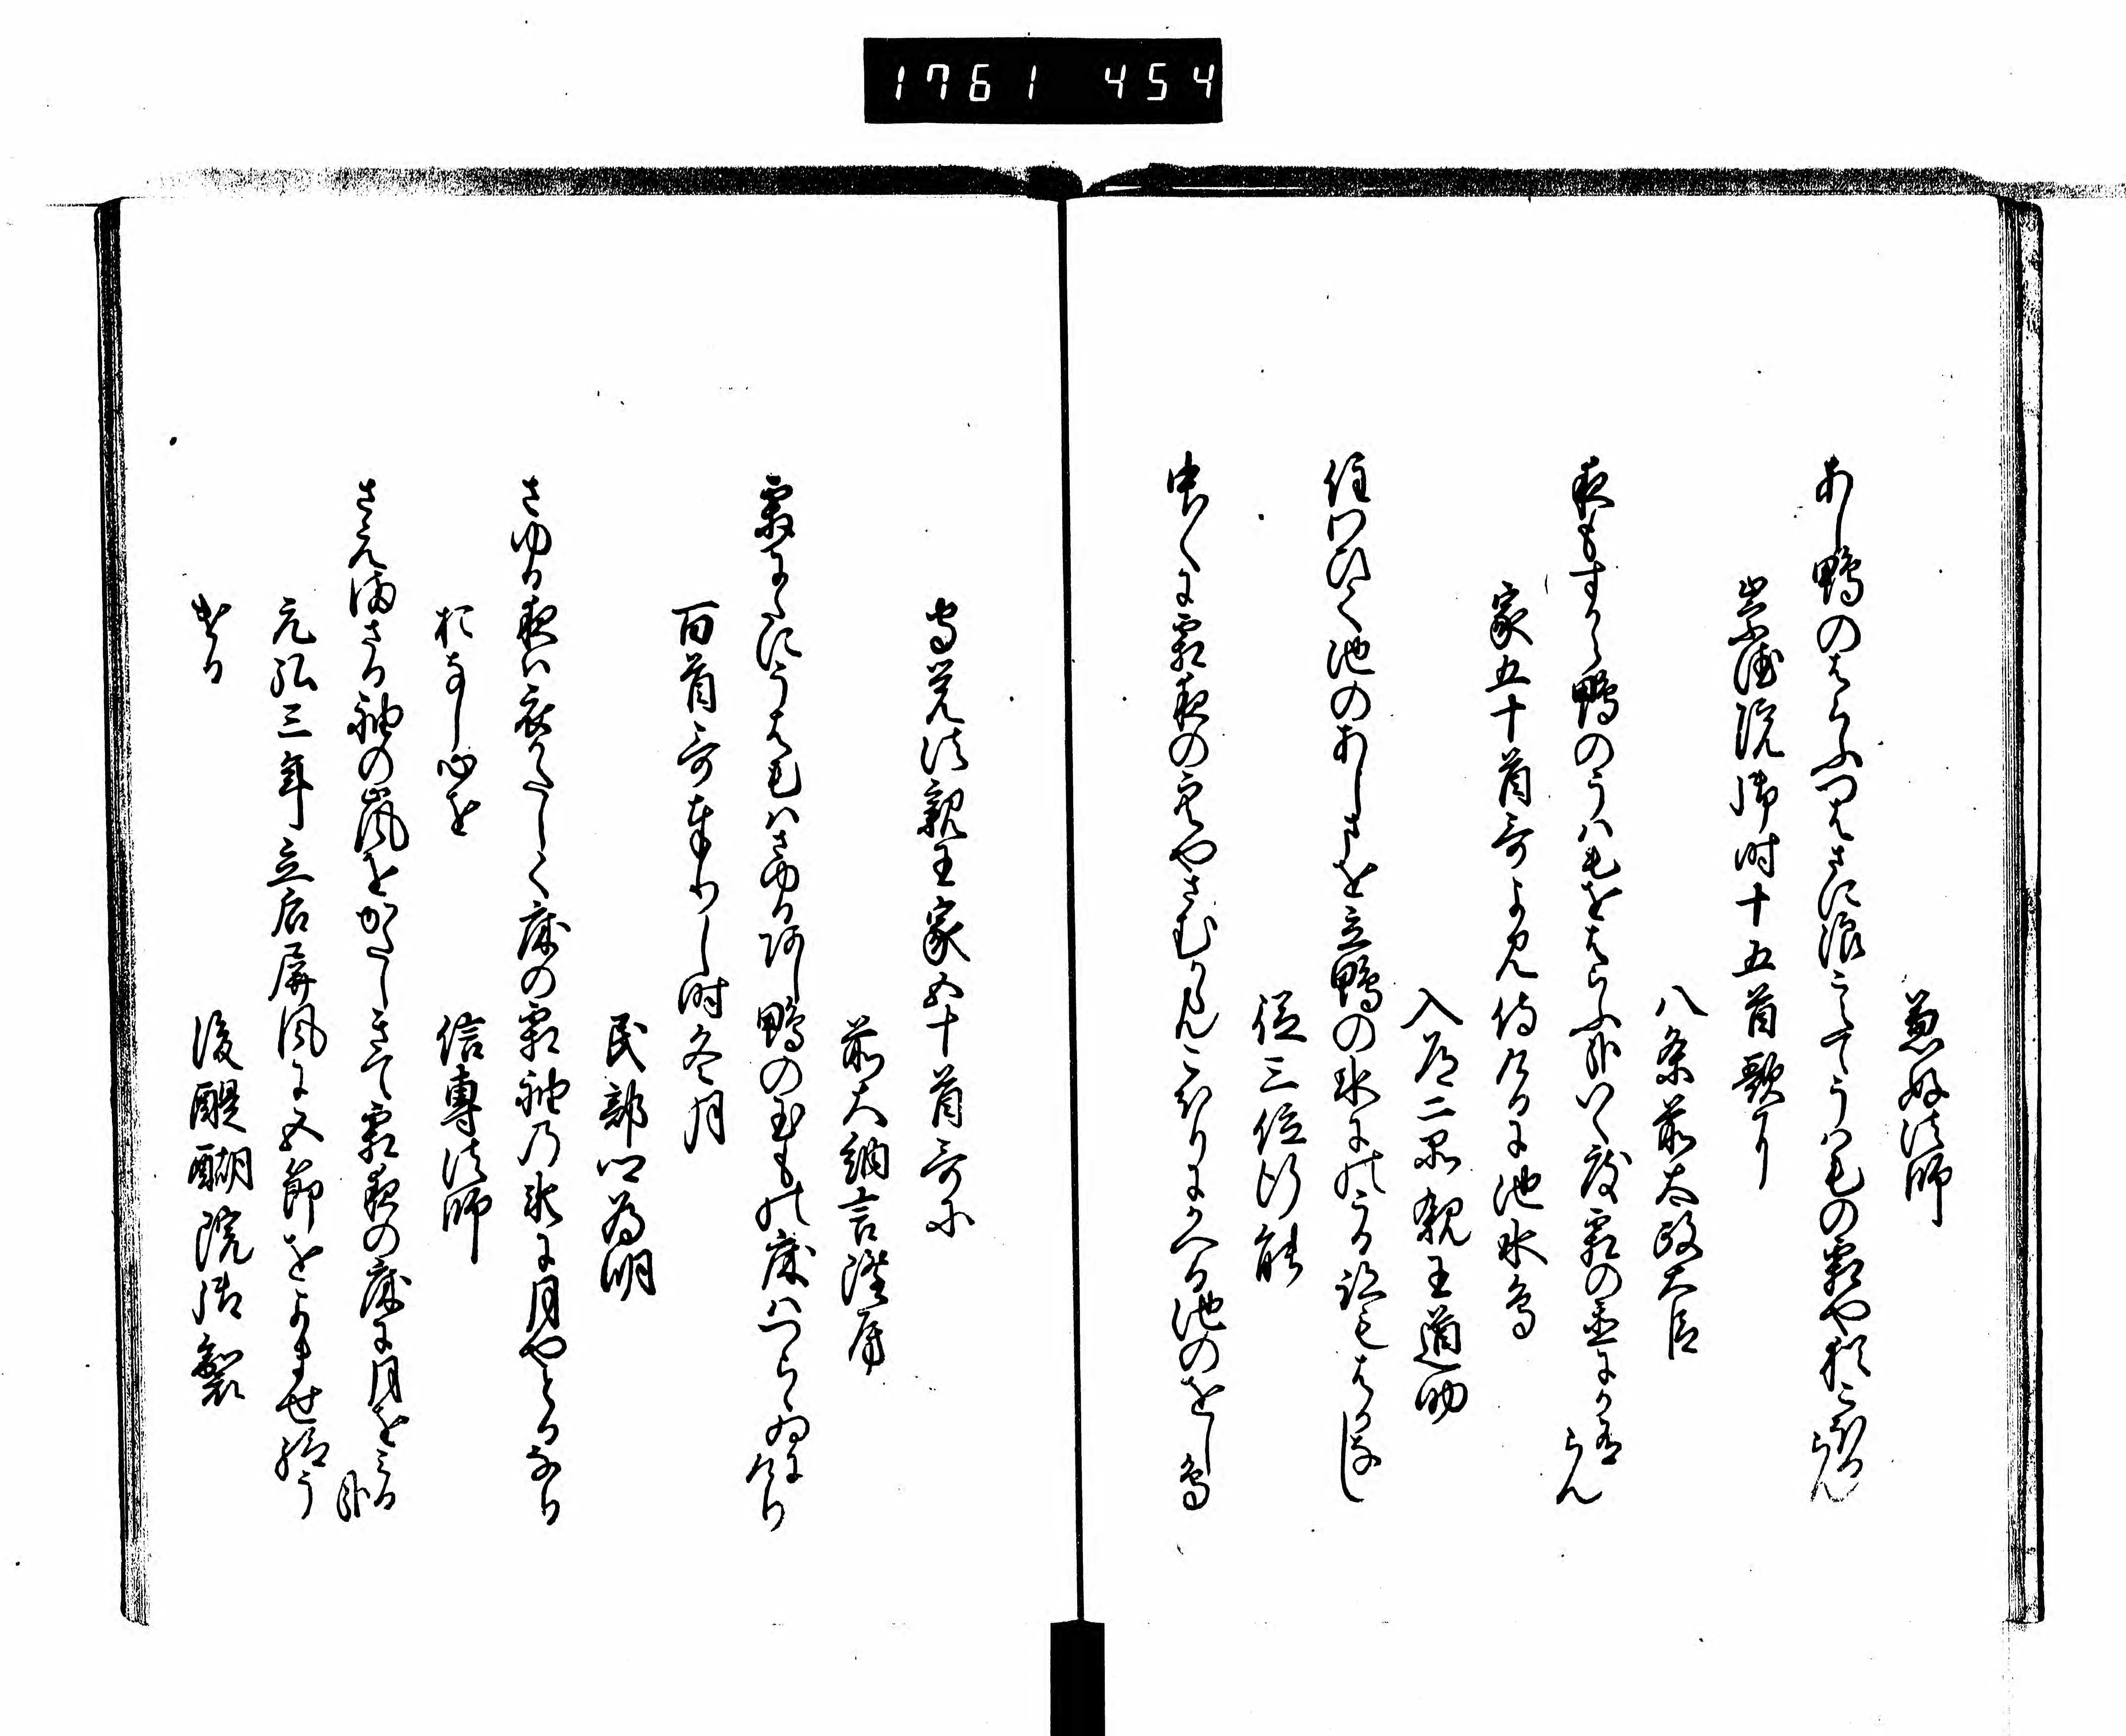 1761 454
兼好法師
あし鴨のはらふつはさに浪こえてうはけの霜や猶こほるらん
崇徳院御時十五首歌に
八条前太政大臣
夜もすから鴨のうはけをはらふ哉いく度霜の
らん
家五十首哥よみ侍けるに池水鳥
入道二品親王道助
住わひて池のあしまを立鴨の氷にのこる跡もはかなし
従三位行能
中〱に霜夜の
やさむからんこほりにかへる池のをし鳥
守覚法親王家五十首哥に
前大納言隆房
霜にたにうはけはさゆるあし鴨の玉もの床はつらゝゐにけり
百首哥奉りし時冬月
民部卿為明
さゆる夜は衣かたしく床の霜袖の氷に月やとるなり
おなし心を
信専法師
さえまさる袖の嵐をかたしきて霜夜の床に月をみる哉
元弘三年立后屏風に五節をよませ給う
ける
後醍醐院御製